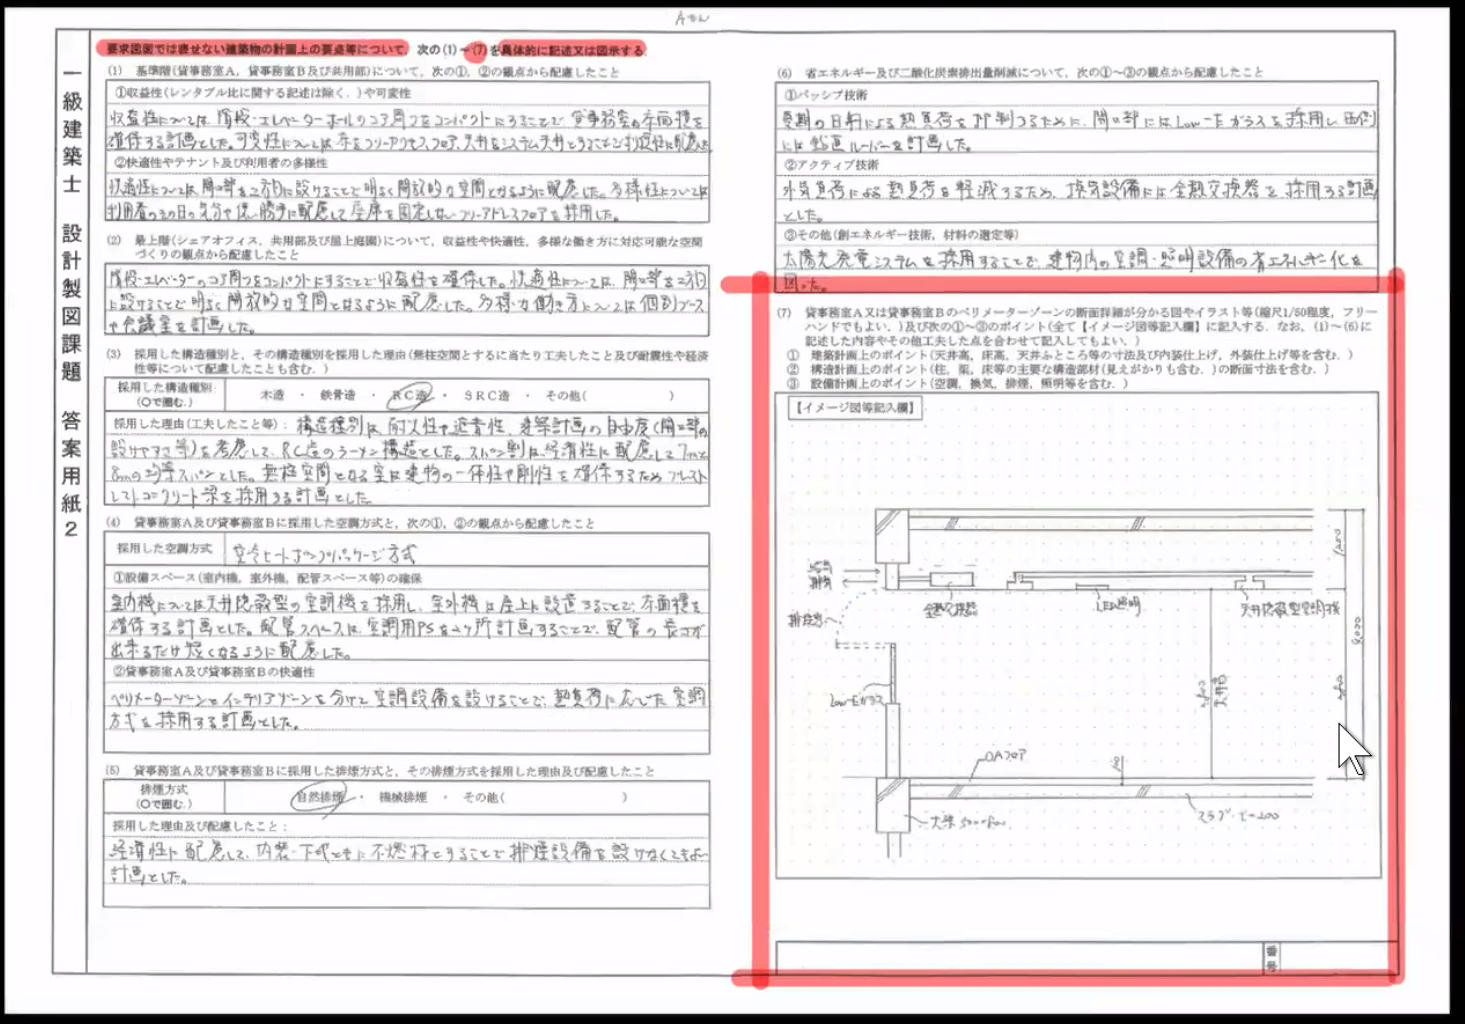 Aさん
一級建築士 設計製図課題 答案用紙2
要求図面では表せない建築物の計画上の要点等について、次の(1)~(7)を具体的に記述又は図示する
(1) 基準階(貸事務室A,貸事務室B及び共用部)について,次の①,②の観点から配慮したこと
①収益性(レンタブル比に関する記述は除く.)や可変性
収益性については、階段・エレベーターホールのコア周りをコンパクトにすることで、貸事務室の床面積を
確保する計画とした。可変性については床をフリーアクセスフロア、天井をシステム天井とすることで
②快適性やテナント及び利用者の多様性
快適性については開口部を二方向に設けることで明るく開放的な空間となるように配慮した。多様性については
利用者のその日の気分や使い勝手に配慮して座席を固定しないフリーアドレスフロアを採用した。
(2) 最上階(シェアオフィス,共用部及び屋上庭園)について,収益性や快適性,多様な働き方に対応可能な空間
づくりの観点から配慮したこと
階段・エレベーターのコア周りをコンパクトにすることで収益性を確保した。快適性については、開口部を二方向
に設けることで明るく開放的な空間となるように配慮した。多様な働き方については個別ブース
や会議室を計画した。
(3) 採用した構造種別と,その構造種別を採用した理由(無柱空間とするに当たり工夫したこと及び耐震性や経済
性等について配慮したことも含む.)
採用した構造種別
(○で囲む.)
木造 ・ 鉄骨造 ・ RC造 ・ SRC造 ・ その他( )
採用した理由(工夫したこと等):構造種別は、耐火性や遮音性、建築計画の自由度(開口部の
設けやすさ等)を考慮して、RC造のラーメン構造とした。スパン割は、経済性に配慮して7mと
8mの均等スパンとした。無柱空間となる室は建物の一体性や剛性を確保するためプレスト
レストコンクリート梁を採用する計画とした。
(4) 貸事務室A及び貸事務室Bに採用した空調方式と,次の①,②の観点から配慮したこと
採用した空調方式
空冷ヒートポンプパッケージ方式
①設備スペース(室内機,室外機,配管スペース等)の確保
室内機については天井隠蔽型の空調機を採用し、室外機は屋上に設置することで、床面積を
確保する計画とした。配管スペースは、空調用PSを2ヶ所計画することで、配管の長さが
出来るだけ短くなるように配慮した。
②貸事務室A及び貸事務室Bの快適性
ペリメーターゾーンとインテリアゾーンを分けて空調設備を設けることで、熱負荷に応じた空調
方式を採用する計画とした。
(5) 貸事務室A及び貸事務室Bに採用した排煙方式と,その排煙方式を採用した理由及び配慮したこと
排煙方式
(○で囲む.)
自然排煙 ・ 機械排煙 ・ その他( )
採用した理由及び配慮したこと:
経済性に配慮して、内装・下地ともに不燃材とすることで排煙設備を設けなくてもよい
計画とした。
(6) 省エネルギー及び二酸化炭素排出量削減について,次の①~③の観点から配慮したこと
①パッシブ技術
夏期の日射による熱負荷を抑制するために、開口部にはLow-Eガラスを採用し、西側
には鉛直ルーバーを計画した。
②アクティブ技術
外気負荷による熱負荷を軽減するため、換気設備には全熱交換器を採用する計画
とした。
③その他(創エネルギー技術,材料の選定等)
太陽光発電システムを採用することで、建物内の空調・照明設備の省エネルギー化を
図った。
(7) 貸事務室A又は貸事務室Bのペリメーターゾーンの断面詳細が分かる図やイラスト等(縮尺1/50程度,フリー
ハンドでもよい.)及び次の①~③のポイント(全て【イメージ図等記入欄】に記入する.なお,(1)~(6)に
記述した内容やその他工夫した点を合わせて記入してもよい.)
① 建築計画上のポイント(天井高,床高,天井ふところ等の寸法及び内装仕上げ,外装仕上げ等を含む.)
② 構造計画上のポイント(柱,梁,床等の主要な構造部材(見えがかりも含む.)の断面寸法を含む.)
③ 設備計画上のポイント(空調,換気,排煙,照明等を含む.)
【イメージ図等記入欄】
給気
排気
全熱交換器
LED照明
天井隠蔽型空調機
排煙窓
Low-Eガラス
天井高
OAフロア
スラブ t=200
番号